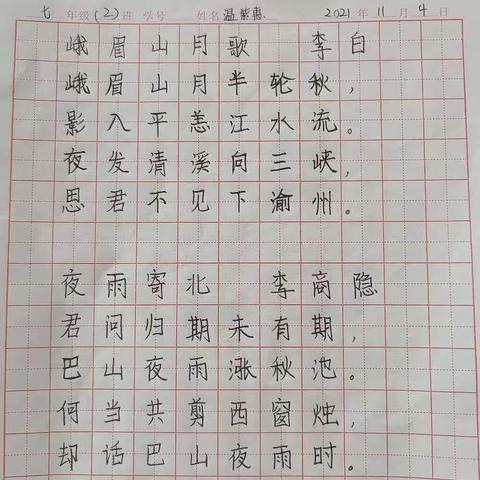 七年级(2)班 学号 姓名温紫惠 2021年11月4日
峨眉山月歌 李白
峨眉山月半轮秋，
影入平羌江水流。
夜发清溪向三峡，
思君不见下渝州。
夜雨寄北 李商隐
君问归期未有期，
巴山夜雨涨秋池。
何当共剪西窗烛，
却话巴山夜雨时。